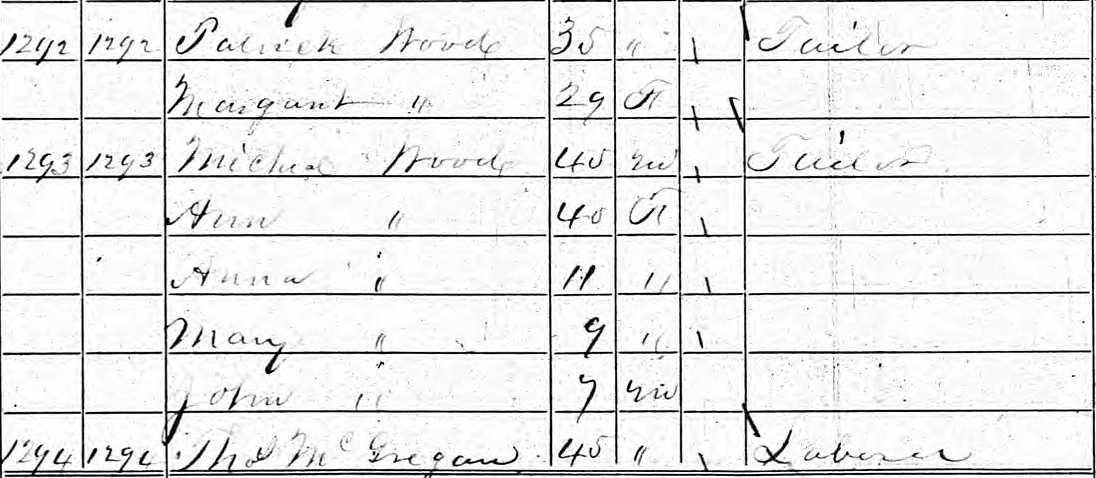 1292 1292 Patrick Wood 35 " Tailor
Margaret " 29 F
1293 1293 Michael Wood 45 m Tailor
Ann " 40 F
Anna " 11 "
Mary " 9 "
John " 7 m
1294 1294 Thos McGregan 45 " Laborer